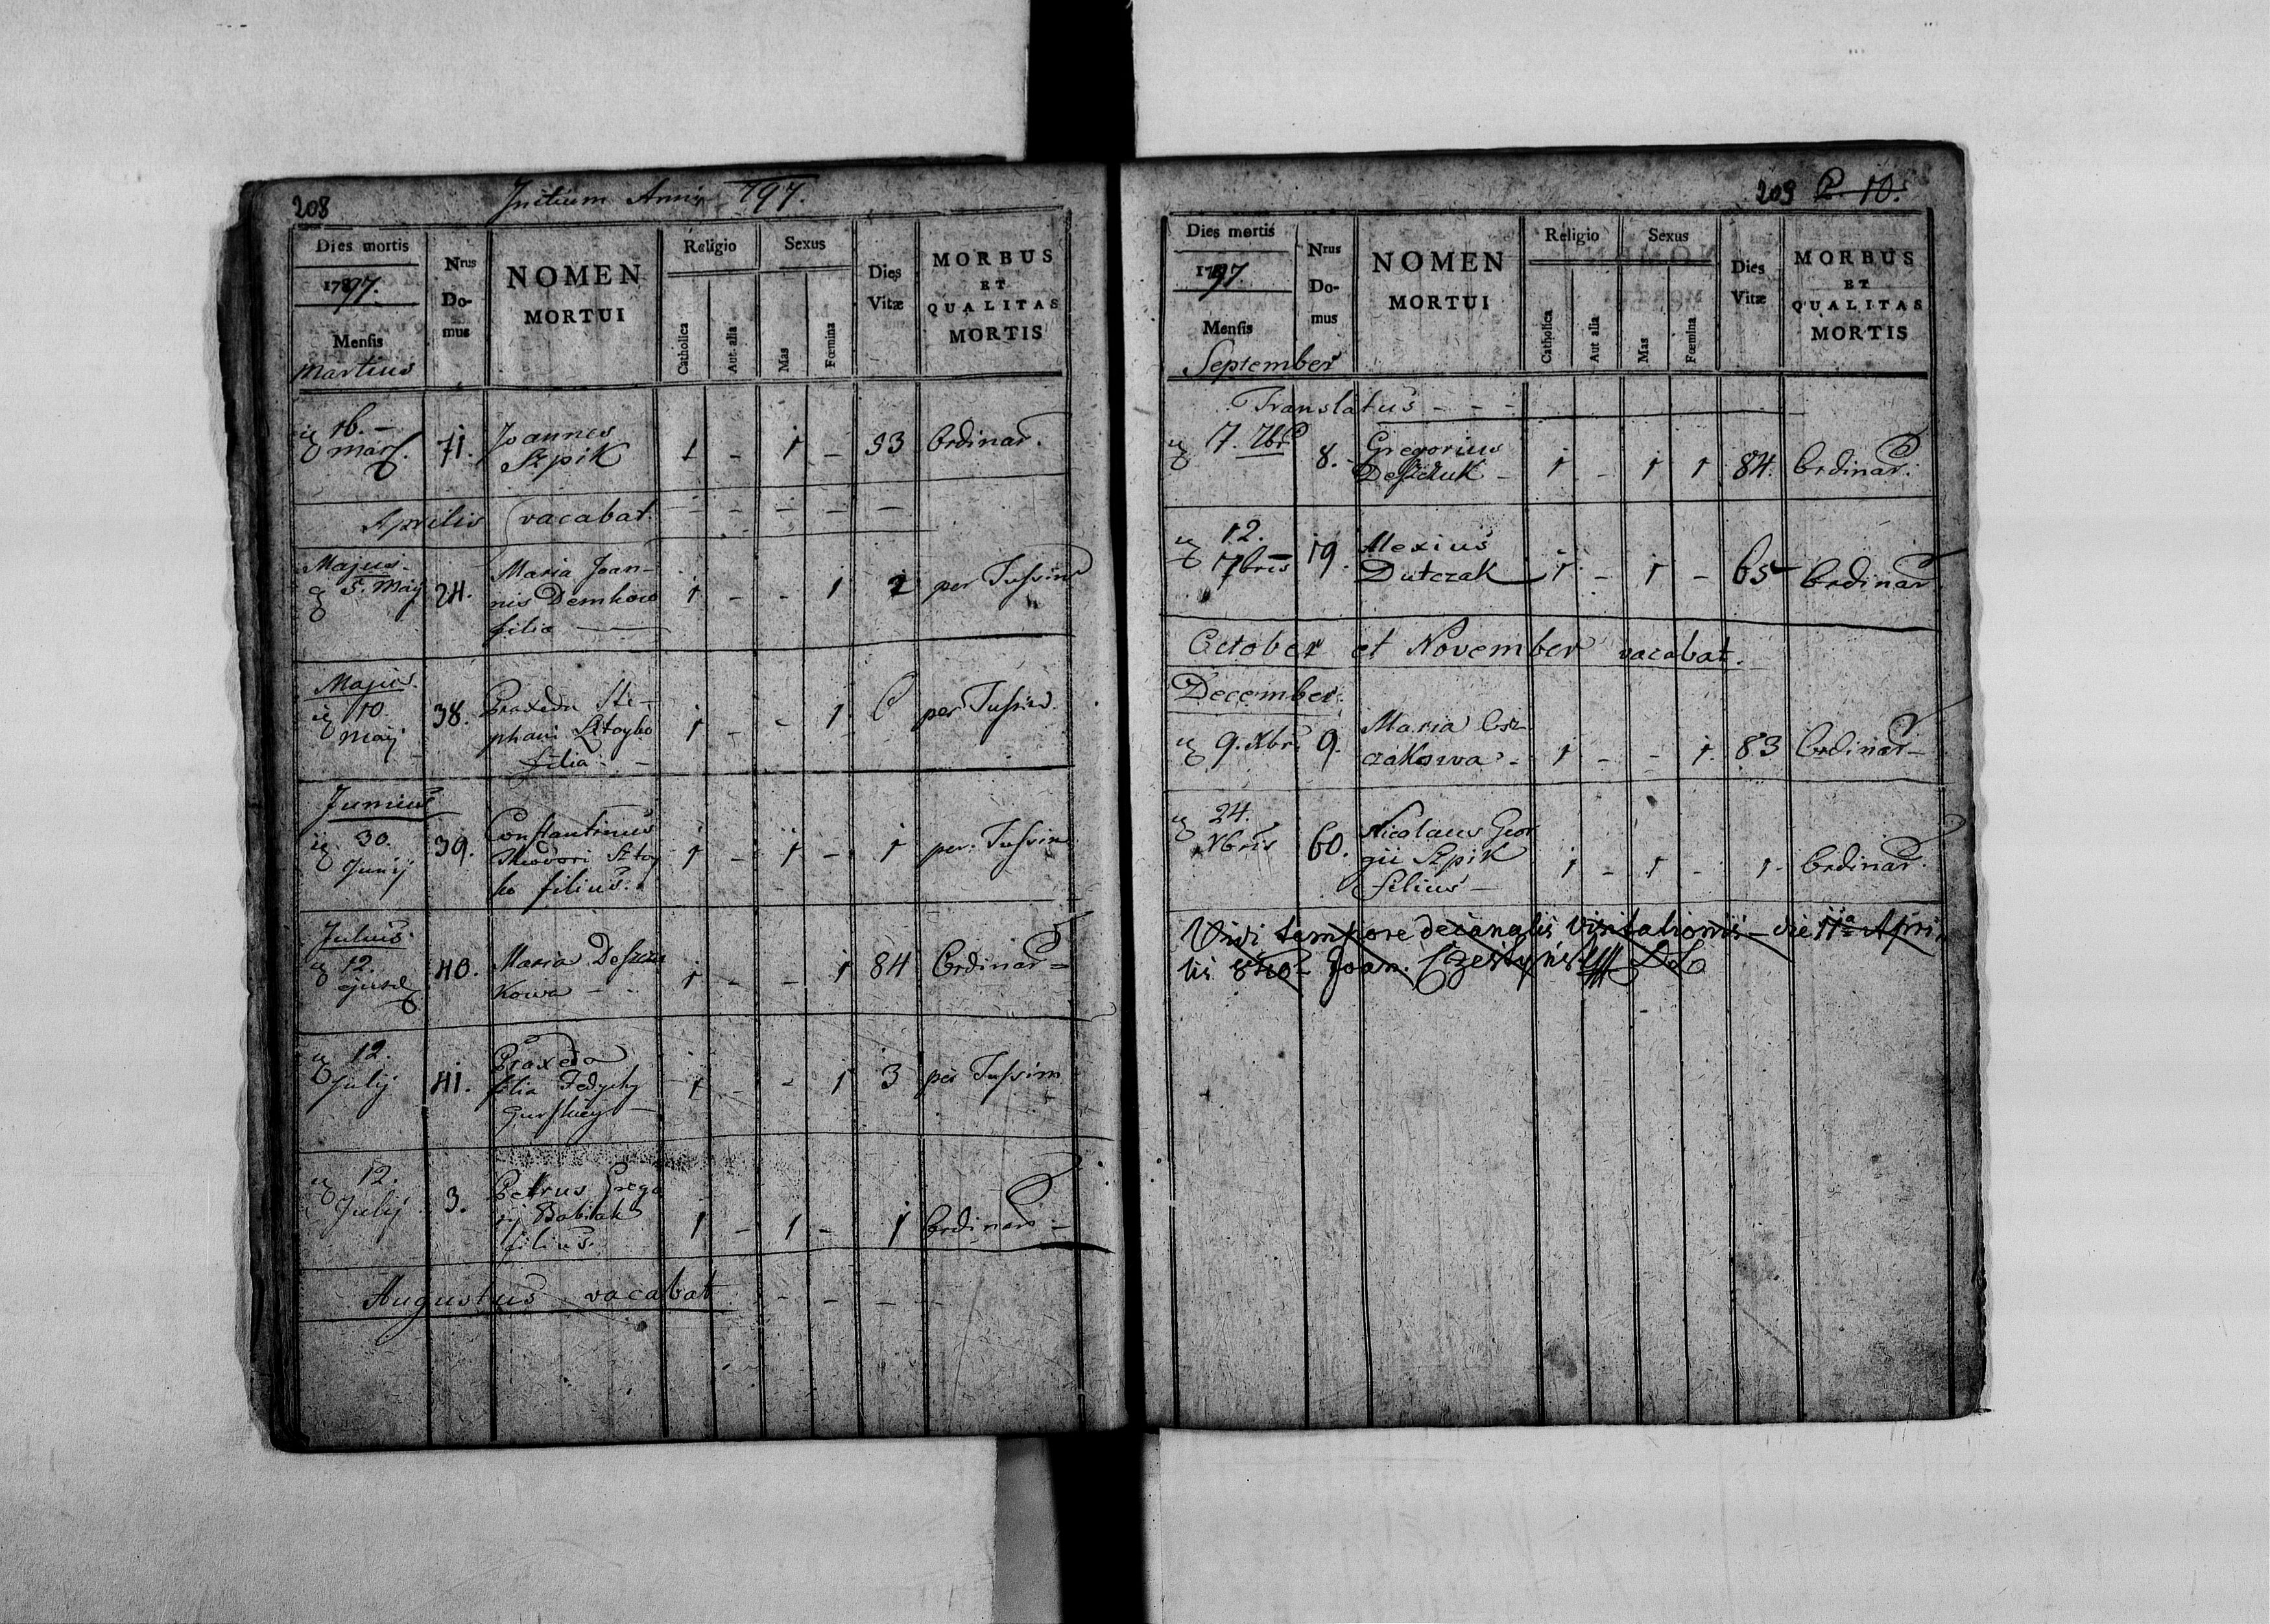 208 Initium Anni 797.
Dies mortis
1797.
Mensis
Martius
Nrus
Do-
mus
NOMEN
MORTUI
Religio
Catholica
Aut. alia
Sexus
Mas
Fœmina
Dies
Vitæ
MORBUS
ET
QUALITAS
MORTIS
16. –
Mart. 71. Joannes
Szpik 1 – 1 – 93 Ordinar.
Aprilis vacabat. – – – – –
Majus.
5. Maij 24. Maria Joan-
nis Demkow
filia 1 – – 1 2 per Tussim
Majus.
10.
Maij 38. Praxeda Ste-
phani Sztoyko
filia – 1 – – 1 6 per Tussim
Junius
30.
Junij 39. Constantinus
Theodori Sztoy
ko filius. 1 – 1 – 1 per Tussim
Julius
12.
ejusd 40. Maria Deszczu
kowa – 1 – – 1 84 Ordinar –
12.
Julij 41. Praxeda
filia Fedychy
1 – – 1 3 per Tussim
12.
Julij 3. Petrus Grego
rij Babiak
filius. 1 – 1 – 1 Ordinar –
Augustus vacabat – – – –
209 P. 10.
Dies mortis
1797.
Mensis
September
Nrus
Do-
mus
NOMEN
MORTUI
Religio
Catholica
Aut alia
Sexus
Mas
Fœmina
Dies
Vitæ
MORBUS
ET
QUALITAS
MORTIS
Translatus – – –
17. 7br 8. Gregorius
Deszczuk – 1 – 1 1 84. Ordinar.
12.
17bris 19. Alexius
Dutczak 1 – 1 – 65 Ordinar
October et November vacabat.
December.
9. Xbr. 9. Maria
czakowa – 1 – – 1. 83 Ordinar –
24.
Xbris 60. Nicolaus Geor
gii Szpik
filius – 1 – 1 – 1. Ordinar.
Vidi tempore decanalis visitationis – die 11a Apri
lis 810 – Joan.